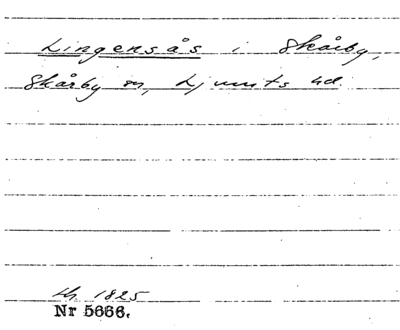 Lingensås i Skårby,
Skårby sn, Ljunits hd.
1825
Nr 5666.